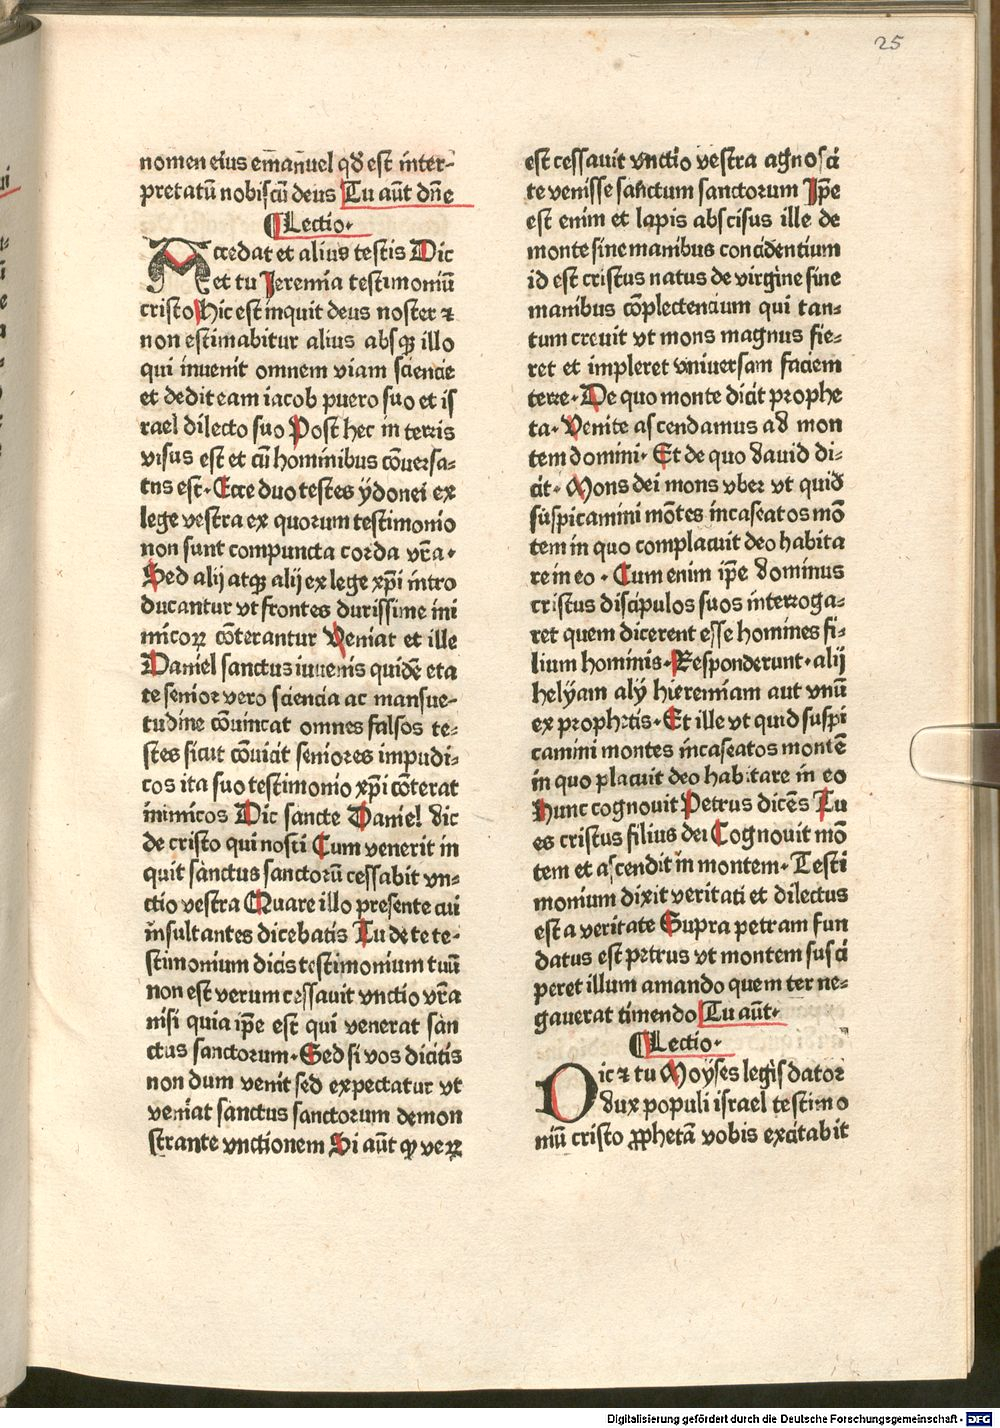 25
nomen eius em̄anuel qď est inter-
pretatū nobiscū deus Tu aūt dn̄e
¶Lectio·
Accedat et alius testis Dic
et tu Jeremia testimoniū
cristo Hic est inquit deus noster ⁊
non estimabitur alius absqꝫ illo
qui inuenit omnem viam sciencie
et dedit eam iacob puero suo et is
rael dilecto suo Post hec in terris
visus est et cū hominibus cōuersa-
tus est· Ecce duo testes ydonei ex
lege vestra ex quorum testimonio
non sunt compuncta corda vr̄a·
Sed alij atqꝫ alij ex lege xp̄i intro
ducantur vt frontes durissime ini
micoꝝ cōterantur Veniat et ille
Daniel sanctus iuuenis quidē eta
te senior vero sciencia ac mansue-
tudine cōuincat omnes falsos te-
stes sicut cōuicit seniores impudi-
cos ita suo testimonio xp̄i cōterat
inimicos Dic sancte Daniel dic
de cristo qui nosti Cum venerit in
quit sanctus sanctorū cessabit vn-
ctio vestra Quare illo presente cui
insultantes dicebatis Tu de te te-
stimonium dicis testimonium tuū
non est verum cessauit vnctio vr̄a
nisi quia ip̄e est qui venerat san
ctus sanctorum· Sed si vos dicitis
non dum venit sed expectatur vt
veniat sanctus sanctorum demon
strante vnctionem Si aūt ꝙ veꝝ
est cessauit vnctio vestra agnosci
te venisse sanctum sanctorum Ip̄e
est enim et lapis abscisus ille de
monte sine manibus concidentium
id est cristus natus de virgine sine
manibus cōplectencium qui tan-
tum creuit vt mons magnus fie-
ret et impleret vniuersam faciem
terre· De quo monte dicit prophe
ta· Venite ascendamus ad mon
tem domini· Et de quo dauid di-
cit· Mons dei mons vber vt quid
suspicamini mōtes incaseatos mō
tem in quo complacuit deo habita
re in eo· Cum enim ip̄e dominus
cristus discipulos suos interroga-
ret quem dicerent esse homines fi-
lium hominis· Responderunt· alij
helyam alij hieremiam aut vnū
ex prophetis· Et ille vt quid suspi
camini montes incaseatos montē
in quo placuit deo habitare in eo
Hunc cognouit Petrus dicēs Tu
es cristus filius dei Cognouit mō
tem et ascendit in montem· Testi
monium dixit veritati et dilectus
est a veritate Supra petram fun
datus est petrus vt montem susci
peret illum amando quem ter ne-
gauerat timendo Tu aūt·
¶Lectio·
Dic ⁊ tu Moyses legisdator
dux populi israel testimo
niū cristo ꝓphetā vobis excitabit
Digitalisierung gefördert durch die Deutsche Forschungsgemeinschaft - DFG